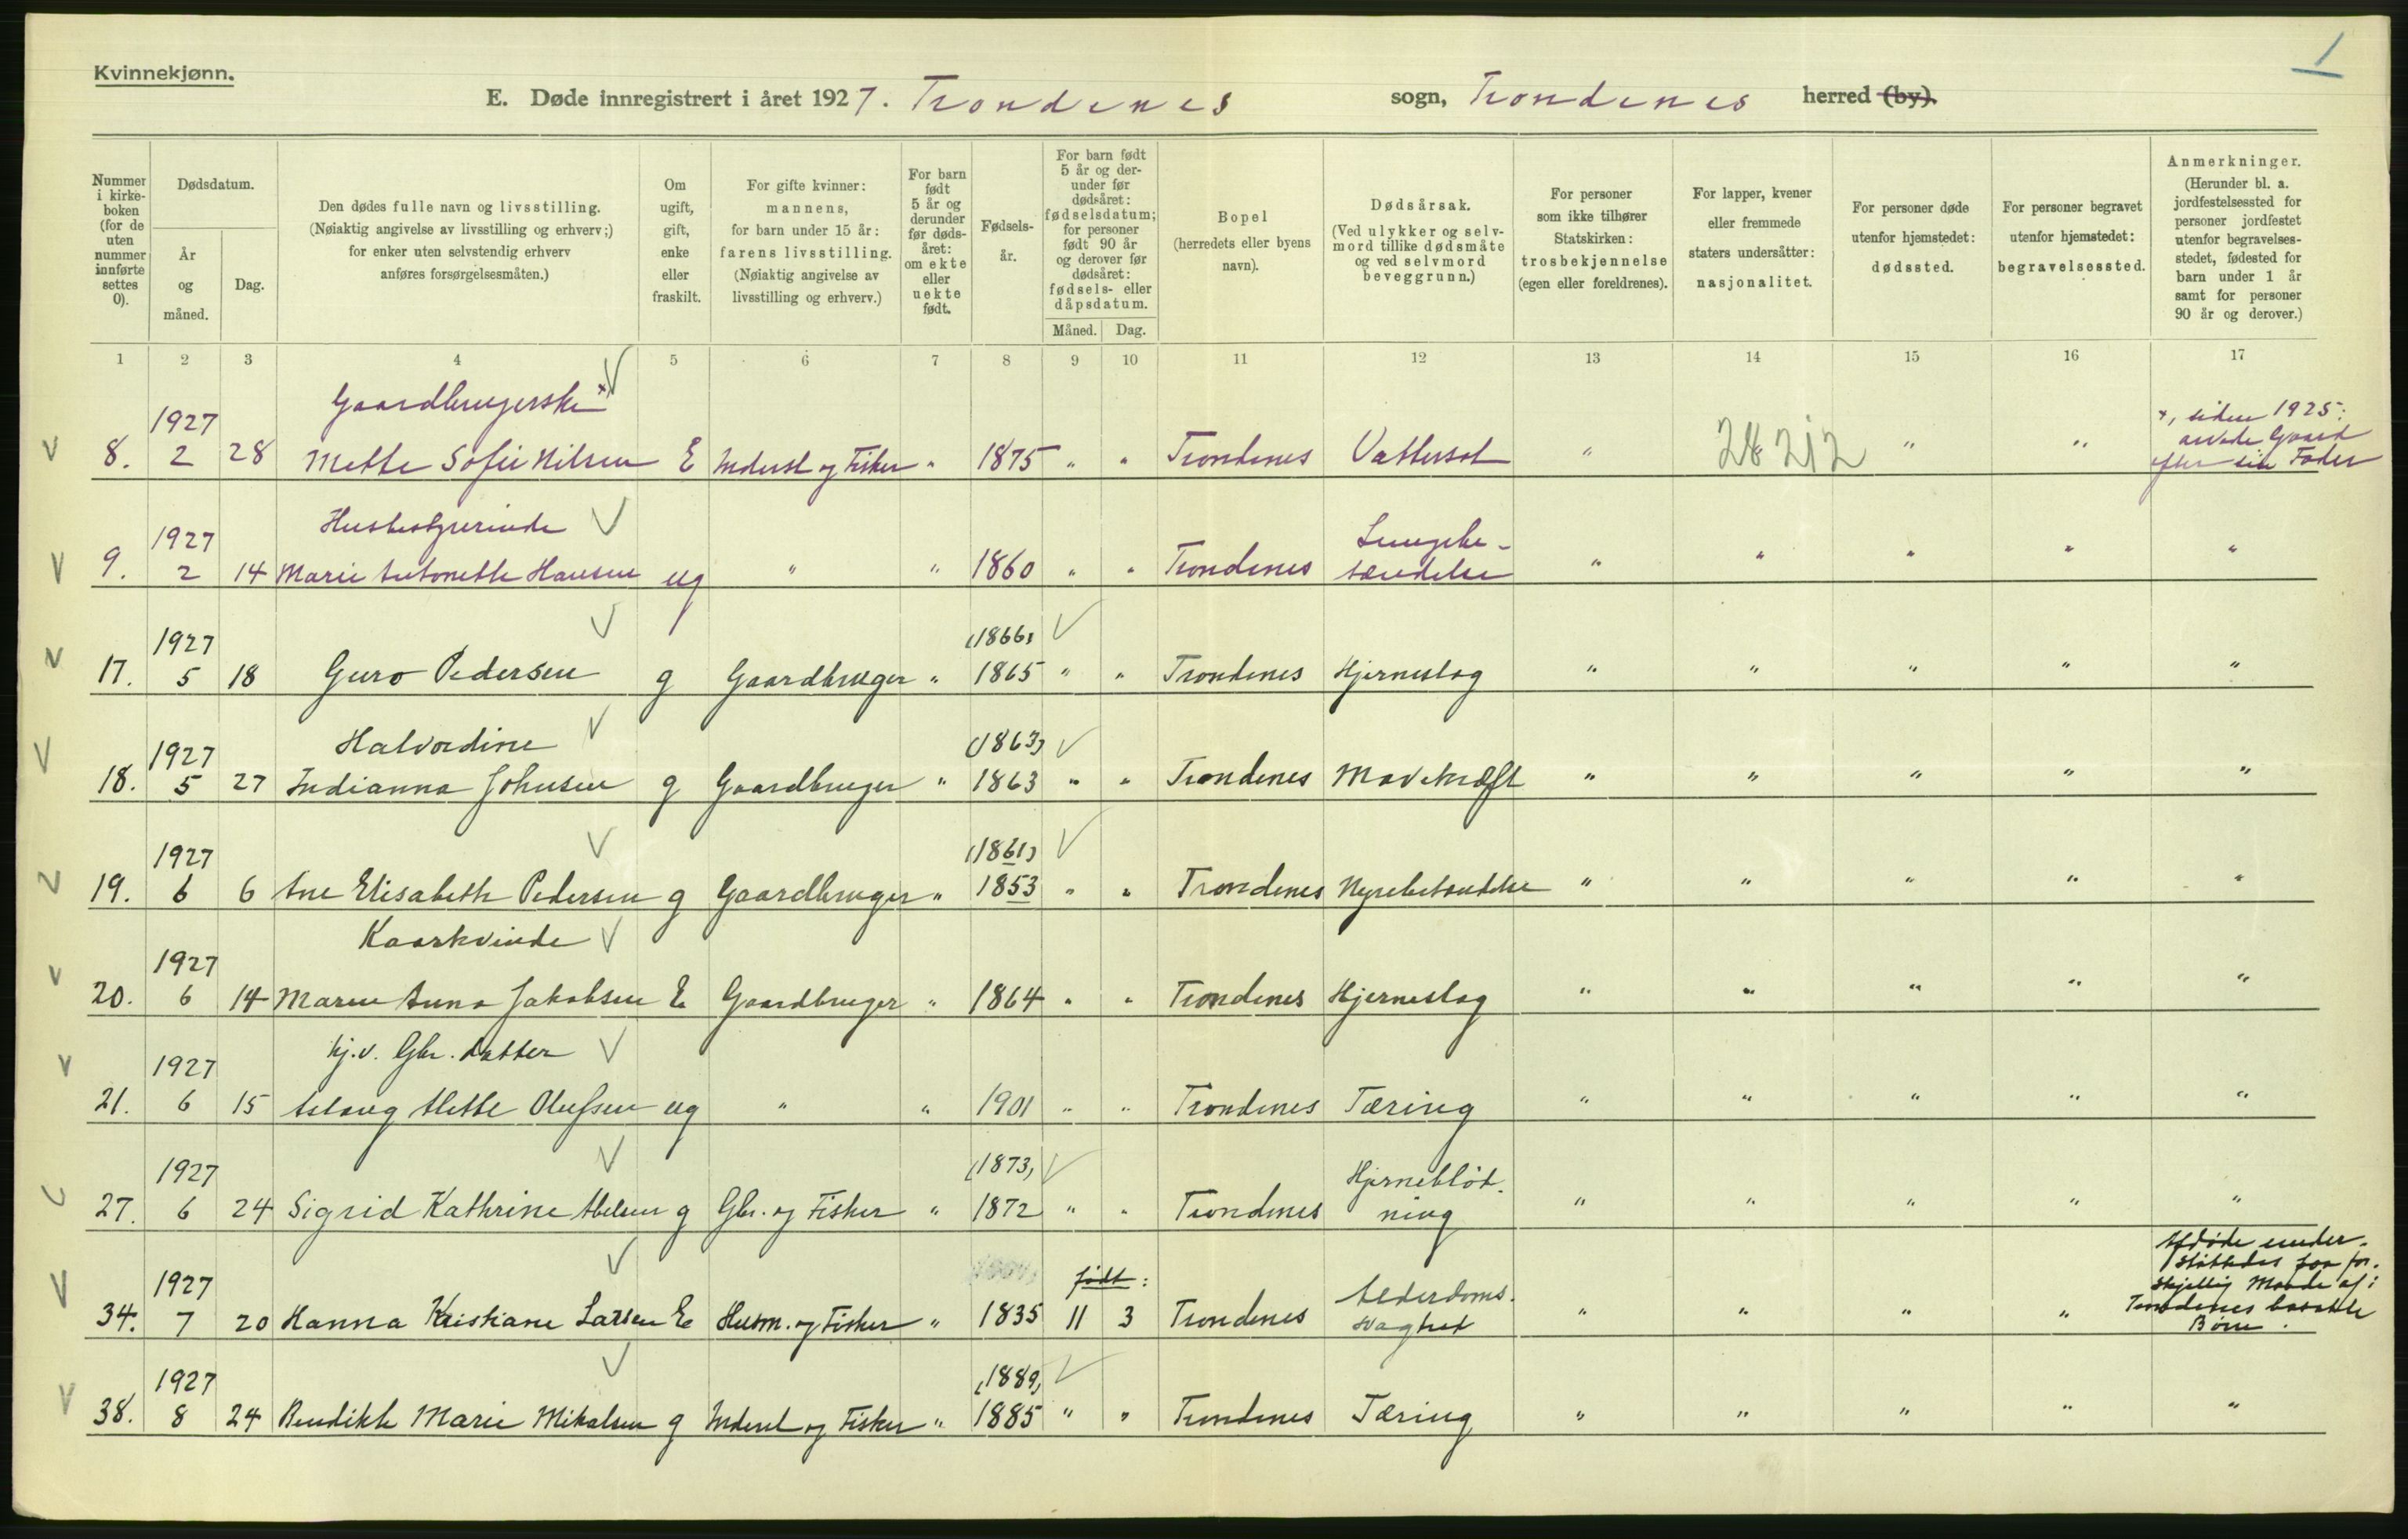 1
Kvinnekjønn.
E. Døde innregistrert i året 1927. Trondenes sogn, Trondenes herred (by).
Nummer i kirkeboken (for de uten nummer innførte settes 0).
Dødsdatum.
År og måned.
Dag.
Den dødes fulle navn og livsstilling. (Nøiaktig angivelse av livsstilling og erhverv;) for enker uten selvstendig erhverv anføres forsørgelsesmåten.)
Om ugift, gift, enke eller fraskilt.
For gifte kvinner: mannens, for barn under 15 år: farens livsstilling. (Nøiaktig angivelse av livsstilling og erhverv.)
For barn født 5 år og derunder før dødsåret: om ekte eller uekte født.
Fødselsår.
For barn født 5 år og derunder før dødsåret: fødselsdatum; for personer født 90 år og derover før dødsåret: fødsels- eller dåpsdatum.
Måned. Dag.
Bopel (herredets eller byens navn).
Dødsårsak. (Ved ulykker og selvmord tillike dødsmåte og ved selvmord beveggrunn.)
For personer som ikke tilhører Statskirken: trosbekjennelse (egen eller foreldrenes).
For lapper, kvener eller fremmede staters undersåtter: nasjonalitet.
For personer døde utenfor hjemstedet: dødssted.
For personer begravet utenfor hjemstedet: begravelsessted.
Anmerkninger. (Herunder bl. a. jordfestelsessted for personer jordfestet utenfor begravelsesstedet, fødested for barn under 1 år samt for personer 90 år og derover.)
1 2 3 4 5 6 7 8 9 10 11 12 13 14 15 16 17
Gaardbrugerske x
1927 x, siden 1925:
arvede Gaard
8. 2 28 Mette Sofie Nilsen E Inderst og Fisker " 1875 " " Trondenes Vattersot " 28212 " " efter sin Fader
Husbestyrerinde
1927 Lungebe-
9. 2 14 Marie Antonette Hansen ug " " 1860 " " Trondenes tændelse " " " " "
1927 (1866)
17. 5 18 Guro Pedersen g Gaardbruger " 1865 " " Trondenes Hjerneslag " " " " "
1927 Halvordine (1863)
18. 5 27 Indianna Johnsen g Gaardbruger " 1863 " " Trondenes Mavekræft " " " " "
1927 (1861)
19. 6 6 Ane Elisabeth Pedersen g Gaardbruger " 1853 " " Trondenes Nyrebetændelse " " " " "
1927 Kaarkvinde
20. 6 14 Maren Anna Jakobsen E Gaardbruger " 1864 " " Trondenes Hjerneslag " " " " "
1927 hj.v. Gbr. datter
21. 6 15 Aslaug Mette Olufsen ug " " 1901 " " Trondenes Tæring " " " " "
1927 (1873) Hjerneblöt-
27. 6 24 Sigrid Kathrine Abelsen g Gbr. og Fisker " 1872 " " Trondenes ning " " " " "
1927 født: Alderdoms- Afdöde under-
støttedes paa for-
skjellig Maade af i
34. 7 20 Hanna Kristiane Larsen E Husm. og Fisker " 1835 11 3 Trondenes svaghet " " " " Trondenes bosatte
Börn.
1927 (1889)
38. 8 24 Bendikte Marie Mikalsen g Inderst og Fisker " 1885 " " Trondenes Tæring " " " " "